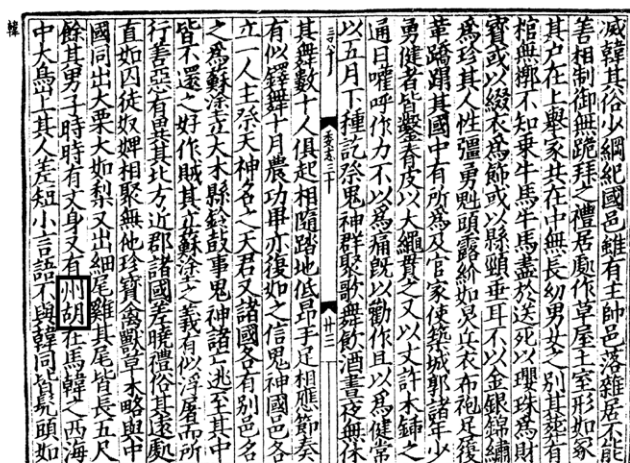 滅韓其俗少綱紀國邑雖有主帥邑落雜居不能
善相制御無跪拜之禮居處作草屋土室形如冢
其戶在上舉家共在中無長幼男女之別其葬有
棺無槨不知乘牛馬牛馬盡於送死以瓔珠為財
寶或以綴衣為飾或以縣頸垂耳不以金銀錦繡
為珍其人性彊勇魁頭露紒如炅兵衣布袍足履
革蹻蹋其國中有所為及官家使築城郭諸年少
勇健者皆鑿脊皮以大繩貫之又以丈許木鍤之
通日嚾呼作力不以為痛既以勸作且以為健常
以五月下種訖祭鬼神群聚歌舞飲酒晝夜無休
三十
廿二
其舞數十人俱起相隨踏地低昂手足相應節奏
有似鐸舞十月農功畢亦復如之信鬼神國邑各
立一人主祭天神名之天君又諸國各有別邑名
之為蘇塗立大木縣鈴鼓事鬼神諸亡逃至其中
皆不還之好作賊其立蘇塗之義有似浮屠而所
行善惡有異其北方近郡諸國差曉禮俗其遠處
直如囚徒奴婢相聚無他珍寶禽獸草木略與中
國同出大栗大如梨又出細尾雞其尾皆長五尺
餘其男子時時有文身又有州胡在馬韓之西海
中大島上其人差短小言語不與韓同皆髡頭如
韓